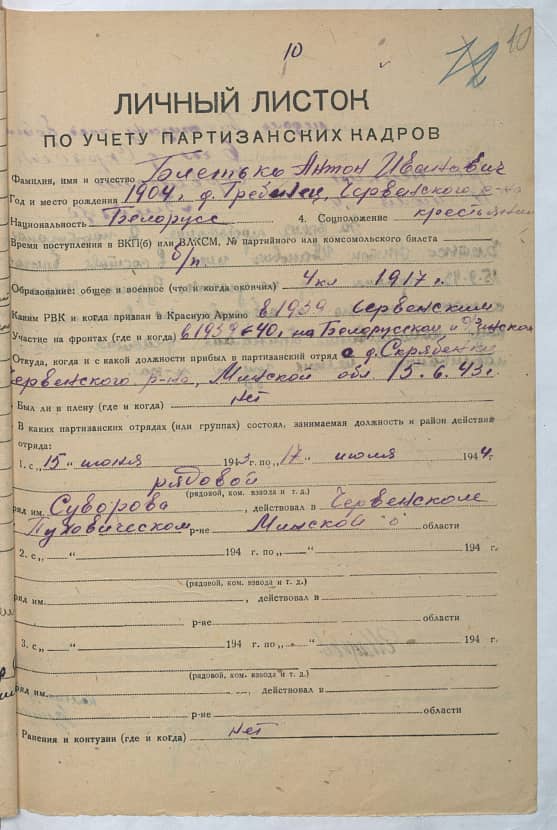 10
10
ЛИЧНЫЙ ЛИСТОК
ПО УЧЕТУ ПАРТИЗАНСКИХ КАДРОВ
Фамилия, имя и отчество Блетько Антон Иванович
Год и место рождения 1904 г. д. Гребенец, Червенского р-на
Национальность Белорусс 4. Соцположение крестьянин
Время поступления в ВКП(б) или ВЛКСМ, № партийного или комсомольского билета
б/п
Образование: общее и военное (что и когда окончил) 4 кл 1917 г.
Каким РВК и когда призван в Красную Армию в 1939 Червенским
Участие на фронтах (где и когда) в 1939-40 г. на Белорусской и Финской
Откуда, когда и с какой должности прибыл в партизанский отряд с д. Скрябенка
Червенского р-на, Минской обл. 15.6.43 г.
Был ли в плену (где и когда) нет
В каких партизанских отрядах (или группах) состоял, занимаемая должность и район действия
отряда:
1. с „15“ июня 1943 г. по „17“ июля 1944 г.
рядовой
(рядовой, ком. взвода и т. д.)
ряд им. Суворова, действовал в Червенском
Пуховическом р-не Минской о области
2. с „ “ 194 г. по „ “ 194 г.
(рядовой, ком. взвода и т. д.)
ряд им. , действовал в
р-не области
3. с „ “ 194 г. по „ “ 194 г.
(рядовой, ком. взвода и т. д.)
ряд им. , действовал в
р-не области
Ранения и контузии (где и когда) нет